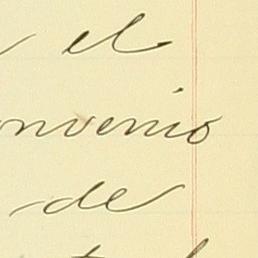 el
onvenio
de